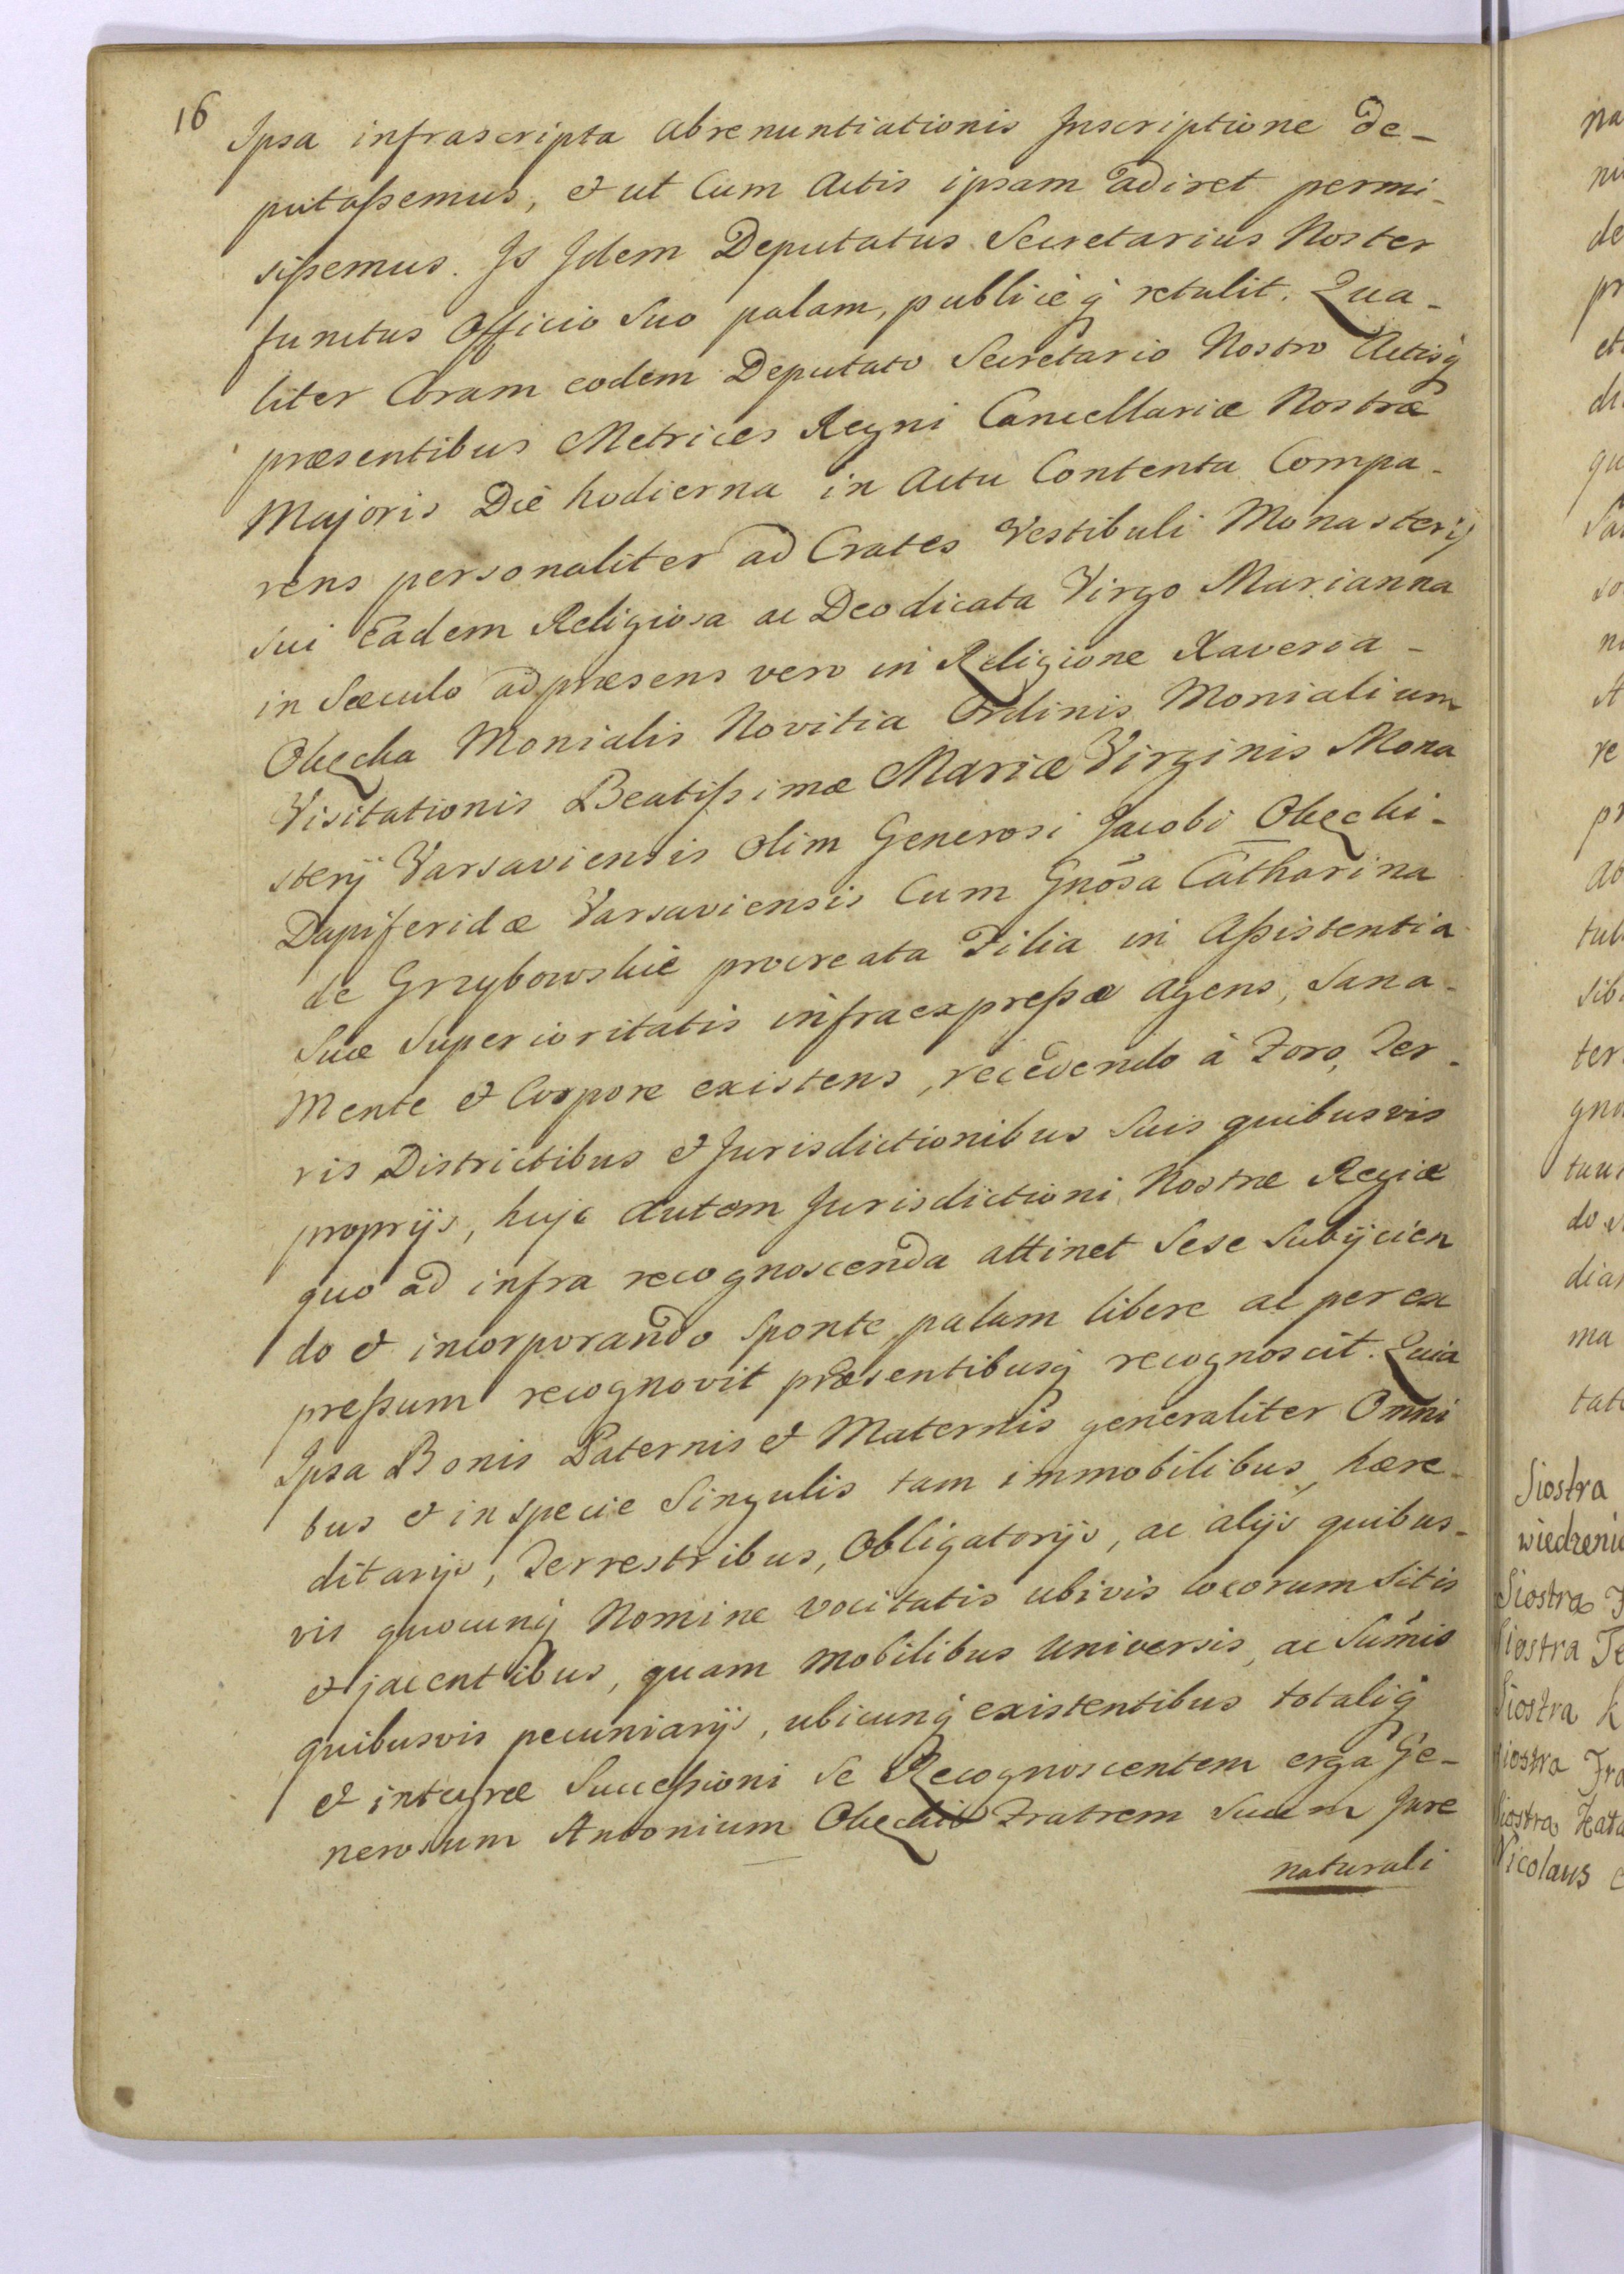 16
Ipsa infrascripta abrenuntiationis Inscriptione de-
putassemus, & ut Cum Actis ipsam adiret permi-
sissemus. Is Idem Deputatus Secretarius Noster
functus Officio Suo palam, publiceq́ retulit. Qua-
liter Coram eodem Deputato Secretario Nostro Actisq́
præsentibus Metrices Regni Cancellariæ Nostræ
Majoris Die hodierna in Actu Contenta Compa-
rens personaliter ad Crates Vestibuli Monasterij
sui Eadem Religiosa ac Deodicata Virgo Marianna
in Sæculo ad præsens vero in Religione Xaveria -
Okęcka Monialis Novitia Ordinis Monialium
Visitationis Beatissimæ Mariæ Virginis Mona
sterij Varsaviensis olim Generosi Jacobi Okęcki-
Dapiferidæ Varsaviensis Cum Gnôsa Catharina
de Grzybowskie procreata Filia in Assistentia
Suæ Superioritatis infraexpressæ agens, Sana-
Mente & Corpore existens, recedendo à Foro, Ter-
ris Districtibus & Jurisdictionibus Suis quibusvis
proprijs, huic autem Jurisdictioni Nostræ Regiæ
quo ad infra recognoscenda attinet Sese Subijcien
do & incorporando Sponte palam libere ac per ex
pressum recognovit præsentibusq́ recognoscit. Quia
Ipsa Bonis Paternis & Maternis generaliter Omni
bus & in specie Singulis tam immobilibus, hære-
ditarijs, Terrestribus, Obligatorijs, ac alijs quibus-
vis quocunq́ Nomine vocitatis ubivis locorum Sitis
& jacentibus, quam mobilibus universis, ac Sum̃is
quibusvis pecuniarijs, ubicunq́ existentibus totaliq́
& integræ Successioni Se Recognoscentem erga Ge-
nerosum Antonium Okęcki Fratrem Suum Jure
naturali
Siostra
Siostra
Siostra
Siostra
Siostra
Nicolaus